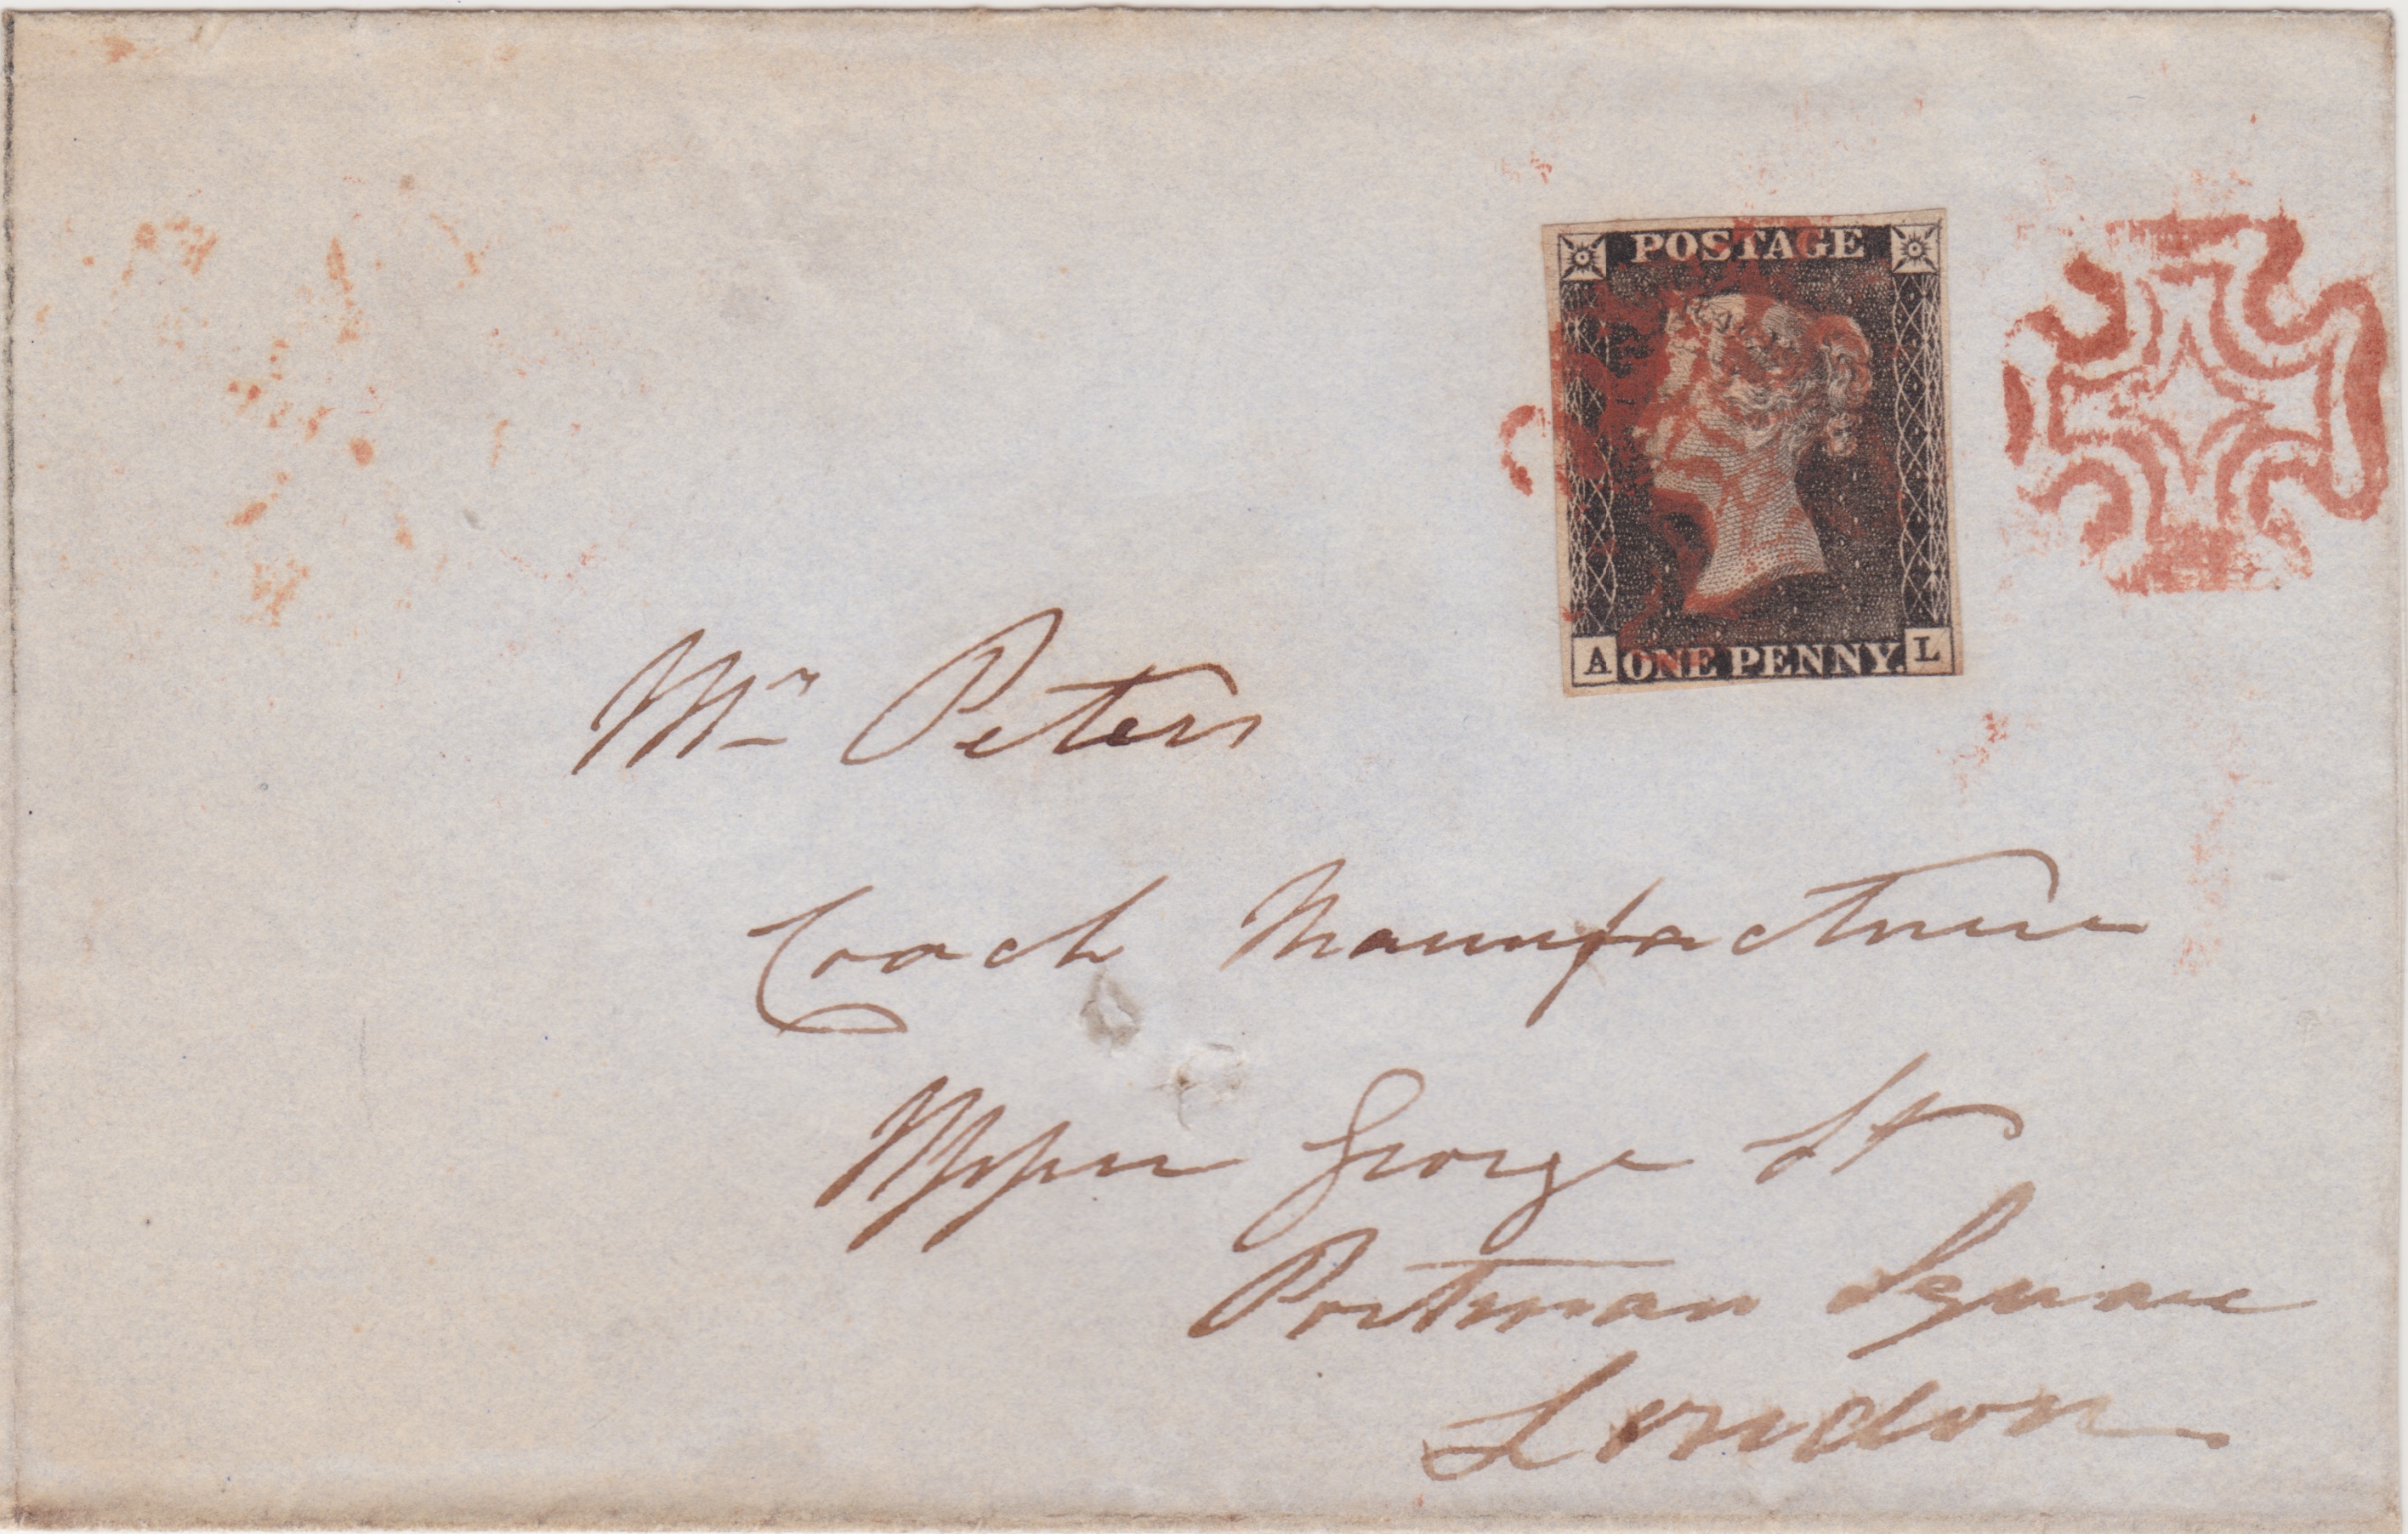 POSTAGE
A ONE PENNY. L
Mr Peters
Coach Manufacturer
Upper George St
Portman Square
London